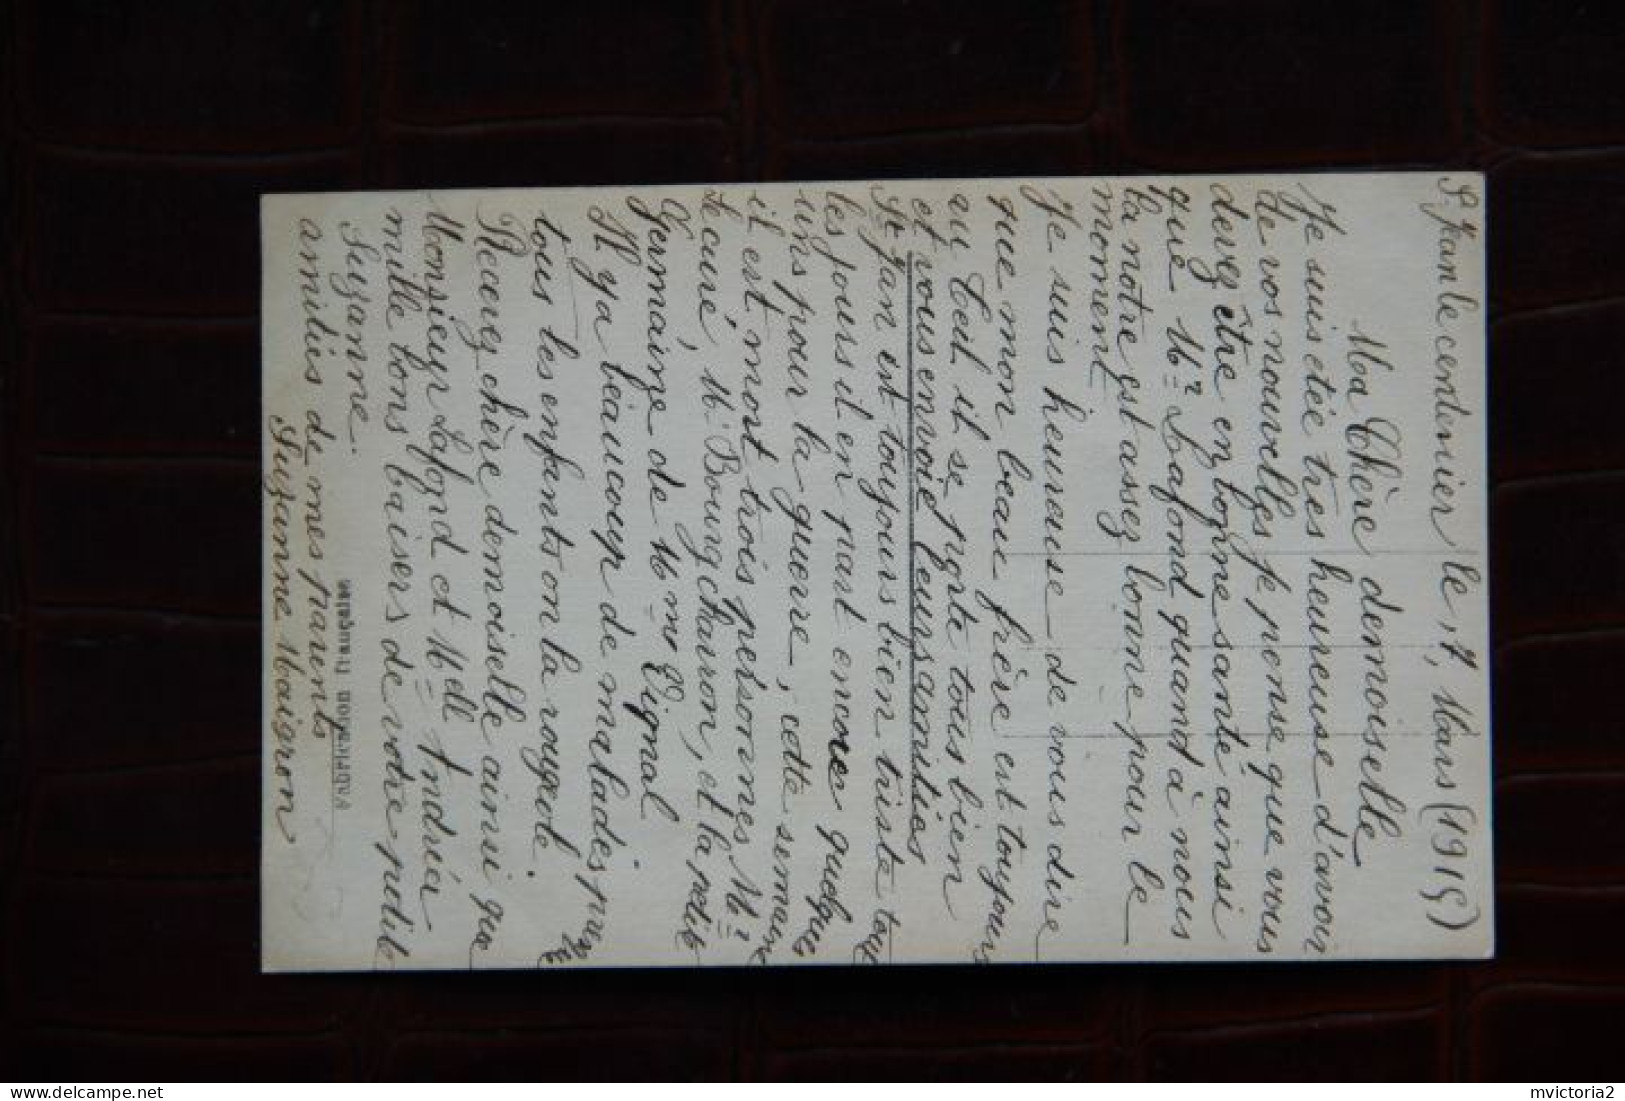 St Jean le centenier le, 7, Mars (1915)
Ma Chère demoiselle
Je suis etée tres heureuse d'avoir
de vos nouvelles je pense que vous
devez être en bonne santé ainsi
que Mr Lafond quand à nous
la notre est assez bonne pour le
moment
Je suis heureuse de vous dire
que mon beau frère est toujours
au Teil il se porte tous bien
et vous envoie leurs amities
St Jean est toujours bien triste tous
les jours il en part encore quelques
uns pour la guerre, cette semaine
il est mort trois personnes Mr
le curé, Mr Bourg charron, et la petite
Germaine de Mme Vignal
Il y a beaucoup de malades par
tous les enfants on la rougeole
Recevez chère demoiselle ainsi que
Monsieur Lafond et Mell Andrée
mille bons baisers de votre petite
Suzanne.
amitiés de mes parents
Suzanne Maigron
Fabrication Française
mvictoria2